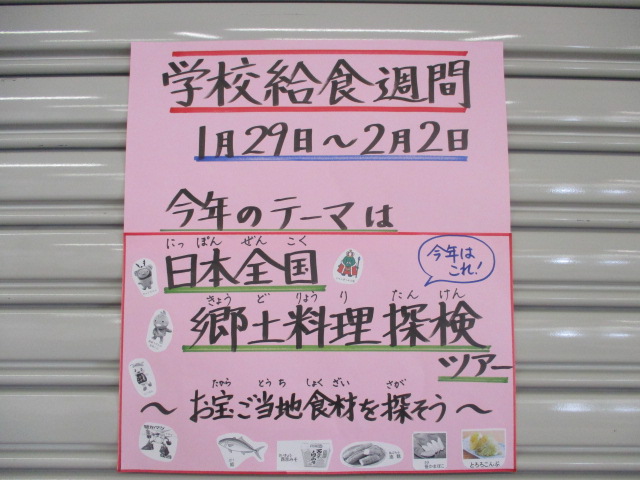 学校給食週間
1月29日～2月2日
今年のテーマは
にっぽんぜんこく
日本全国
今年は
これ!
きょうどりょうりたんけん
郷土料理探検
ツアー
たからとうちしょくざいさが
～お宝ご当地食材を探そう～
とろろこんぶ